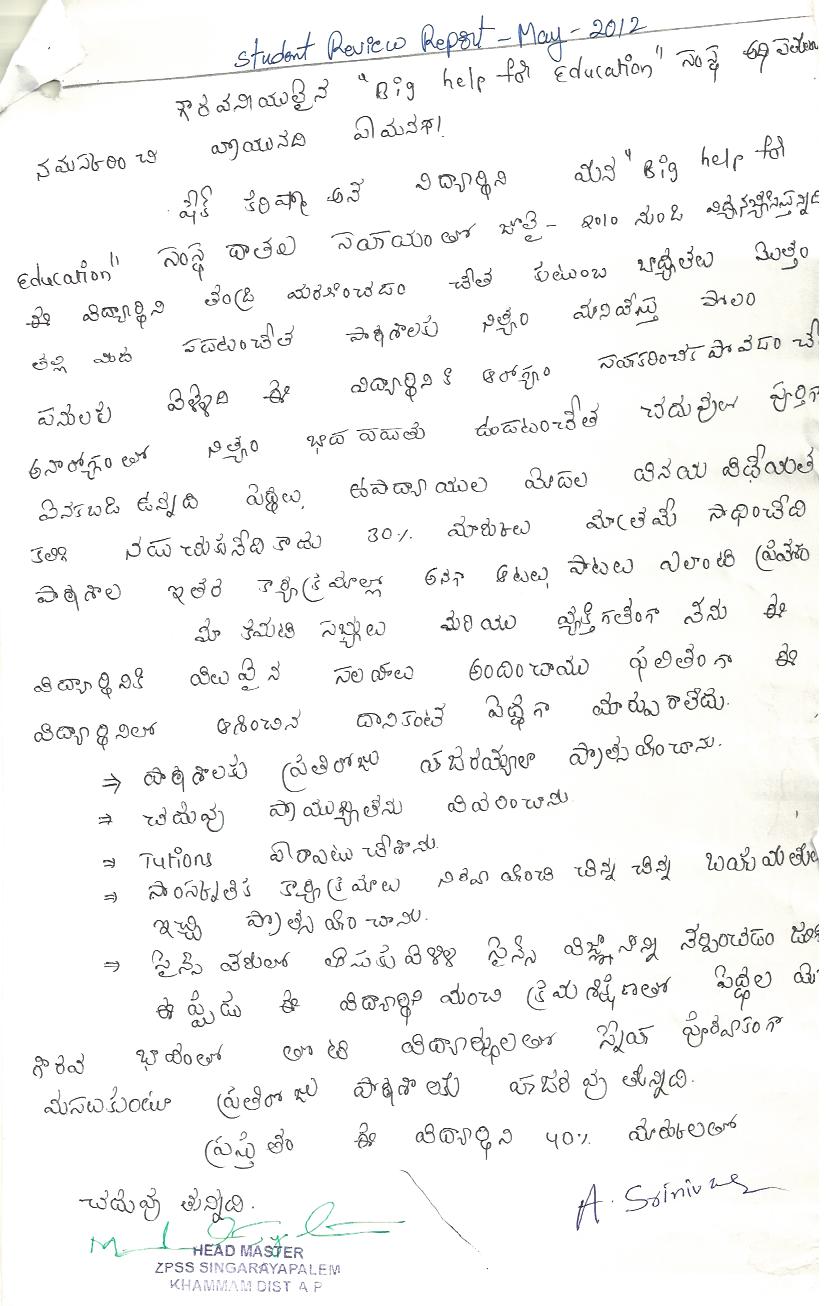 Student Review Report - May - 2012
గౌరవనీయులైన "Big help for Education" సంస్థ
నమస్కరించి వ్రాయునది ఏమనగా!
షేక్ కరిష్మా అనే విద్యార్థిని మన "Big help for
Education" సంస్థ దాతల సహాయంతో జూలై - 2010 నుండి
ఈ విద్యార్థిని తండ్రి మరణించడం చేత కుటుంబ బాధ్యతలు మొత్తం
తల్లి మీద పడటంచేత పాఠశాలకు నిత్యం మానివేస్తు పొలం
పనులకు వెళ్ళేది ఈ విద్యార్థినికి ఆరోగ్యం సహకరించక పోవడం చే
అనారోగ్యంతో నిత్యం బాధ పడుతు ఉండటంచేత చదువులో పూర్తిగా
వెనకబడి ఉన్నది పెద్దలు, ఉపాధ్యాయుల మీదల వినయ విధేయత
కలిగి నడుచుకునేది కాదు 30% మార్కులు మాత్రమే సాధించేది
పాఠశాల ఇతర కార్యక్రమాల్లో అనగా ఆటలు, పాటలు ఎలాంటి ప్రవేశం
మా కమిటి సభ్యులు మరియు వ్యక్తిగతంగా నేను ఈ
విద్యార్థినికి విలువైన సలహాలు అందించాము ఫలితంగా ఈ
విద్యార్థినిలో ఆశించిన దానికంటే పెద్దగా మార్పు రాలేదు.
⇒ పాఠశాలకు ప్రతిరోజు హాజరయ్యేలా ప్రోత్సహించాను.
⇒ చదువు ప్రాముఖ్యతను వివరించాను
⇒ Tutions ఏర్పాటు చేశాను.
⇒ సాంస్కృతిక కార్యక్రమాలు నిర్వహించి చిన్న చిన్న బహుమతులు
ఇచ్చి ప్రోత్సహించాను.
⇒ సైన్స్ సైన్స్ విజ్ఞానాన్ని నేర్పించడం
ఈ ప్పుడు ఈ విద్యార్థిని మంచి క్రమశిక్షణతో పెద్దల
గౌరవ భావంతో తోటి విద్యార్థులతో స్నేహ పూర్వకంగా
మసలుకుంటూ ప్రతిరోజు పాఠశాలకు హాజరవుతున్నది.
ప్రస్తుతం ఈ విద్యార్థిని 40% మార్కులతో
చదువుతున్నది.
A. Srinivas
HEAD MASTER
ZPSS SINGARAYAPALEM
KHAMMAM DIST A P